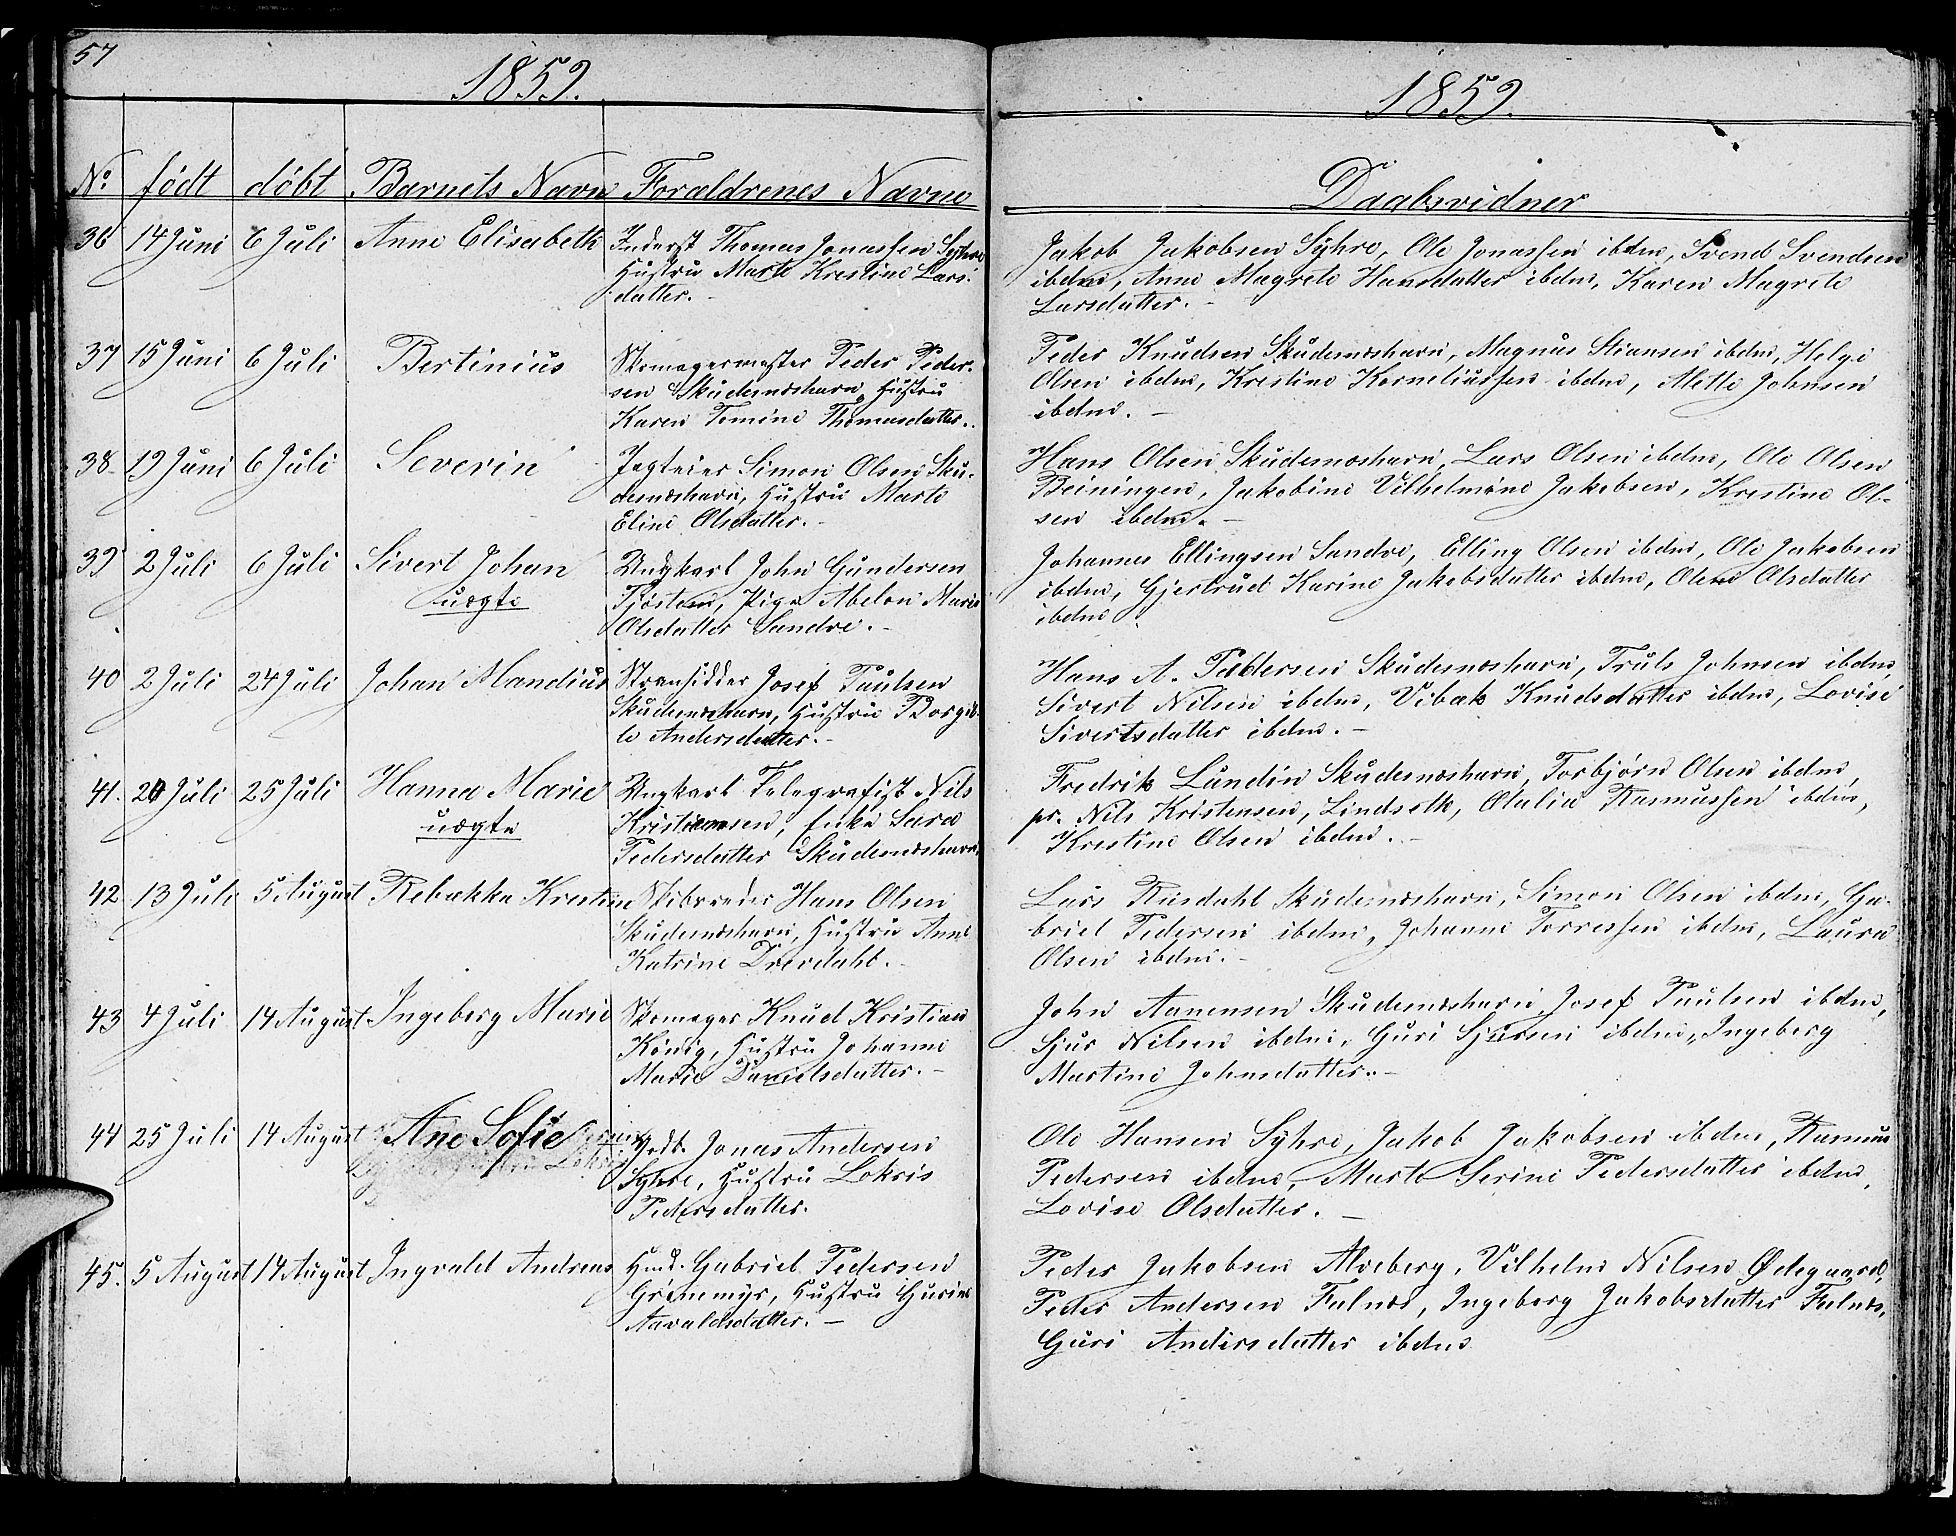 57
1859.
No født døbt Barnets Navn Forældrenes Navne
36 14 Juni 6 Juli Anne Elisabeth Inderst Thomas Jonassen Syhre
Hustru Marte Kristine Lars-
datter. -
37 15 Juni 6 Juli Bertinius Skomagermester Peder Peder-
sen Skudesneshavn, Hustru
Karen Tomine Thomasdatter.
38. 19 Juni 6 Juli Severin Jagteier Simon Olsen Sku-
desneshavn, Hustru Marte
Eline Olsdatter. -
39 2 Juli 6 Juli Sivert Johan Ungkarl John Gundersen
uægte Tjøstem, Pige Abelon Marie
Olsdatter Sandve. -
40 2 Juli 24 Juli Johan Mandius Strandsidder Josef Paulsen
Skudesneshavn, Hustru Borgil-
le Andersdatter. -
41. 20 Juli 25 Juli Hanna Marie Ungkarl Telegrafist Nils
uægte Kristiansen, Enke Sara
Pedersdatter Skudesneshavn.
42 13 Juli 5 August Rebækka Kristine Skibsreder Hans Olsen
Skudesneshavn, Hustru Anne
Katrine Drevdahl. -
43 4 Juli 14 August Ingeborg Marie Skomager Knud Kristian
König, Hustru Johanne
Marie Danielsdatter. -
44 25 Juli 14 August Ane Sofie Jonas Andersen
Syhre, Hustru Lokris
Pedersdatter.
45. 5 August 14 August Ingvald Andreas Hmd. Gabriel Pedersen
Grønemyr, Hustru Gurine
Aavaldsdatter. -
1859.
Daabsvidner
Jakob Jakobsen Syhre, Ole Jonassen ibdm, Svend Svendsen
ibdm, Anne Magrete Hansdatter ibdm, Karen Magrete
Larsdatter. -
Peder Knudsen Skudesneshavn, Magnus Stiansen ibdm, Helge
Olsen ibdm, Kristine Korneliussen ibdm, Mette Johnsen
ibdm. -
Hans Olsen Skudesneshavn, Lars Olsen ibdm, Ole Olsen
Beiningen, Jakobine Vilhelmine Jakobsen, Kristine Ol-
sen ibdm. -
Johannes Ellingsen Sandve, Elling Olsen ibdm, Ole Jakobsen
ibdm, Gjertrud Karine Jakobsdatter ibdm, Olene Olsdatter
ibdm.
Hans A. Pedersen Skudesneshavn, Truls Johnsen ibdm,
Sivert Nilsen ibdm, Vibak Knudsdatter ibdm, Lovise
Sivertsdatter ibdm. -
Fredrik Lundin Skudesneshavn, Torbjørn Olsen ibdm,
pr. Nils Kristensen, Lindseth, Otalia Rasmussen ibdm,
Kristine Olsen ibdm. -
Lars Riisdahl Skudesneshavn, Simon Olsen ibdm, Ga-
briel Pedersen ibdm, Johanne Torressen ibdm, Laura
Olsen ibdm. -
John Aanensen Skudesneshavn, Josef Paulsen ibdm,
Sjur Nilsen ibdm, Guri Sjursen ibdm, Ingeborg
Martine Johnsdatter. -
Ole Hansen Syhre, Jakob Jakobsen ibdm, Rasmus
Pedersen ibdm, Marte Serine Pedersdatter ibdm,
Lovise Olsdatter. -
Peder Jakobsen Alveberg, Vilhelm Nilsen Ødegaard,
Peder Andersen Falnes, Ingeborg Jakobsdatter Falnes,
Guri Andersdatter ibdm